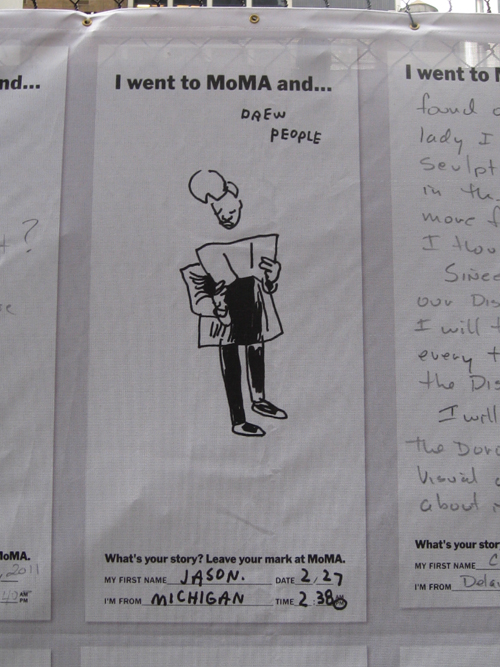 nd...
?
MoMA.
2011
I went to MoMA and...
DREW
PEOPLE
What's your story? Leave your mark at MoMA.
MY FIRST NAME JASON. DATE 2,27
I'M FROM MICHIGAN TIME 2:38 PM
I went to M
found
lady I
Sculpt
in th
more f
I thou
Since
our Dis
I will t
every t
the Dis
I will
the Dord
Visual
about
What's your stor
MY FIRST NAME C
I'M FROM Dela